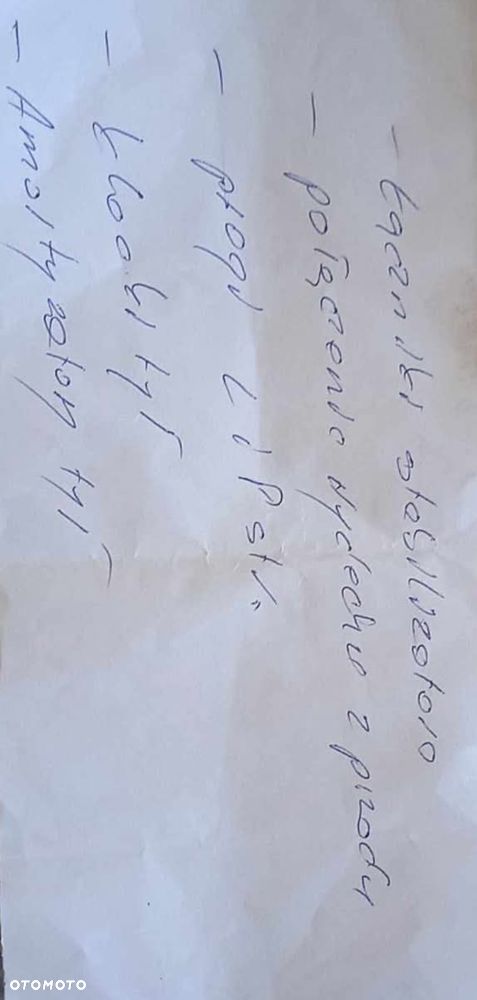 - Łączniki stabilizatora
- połączenie wydechu z przodu
- progi L i P str.
- klocki tył
- Amortyzatory tył
OTOMOTO